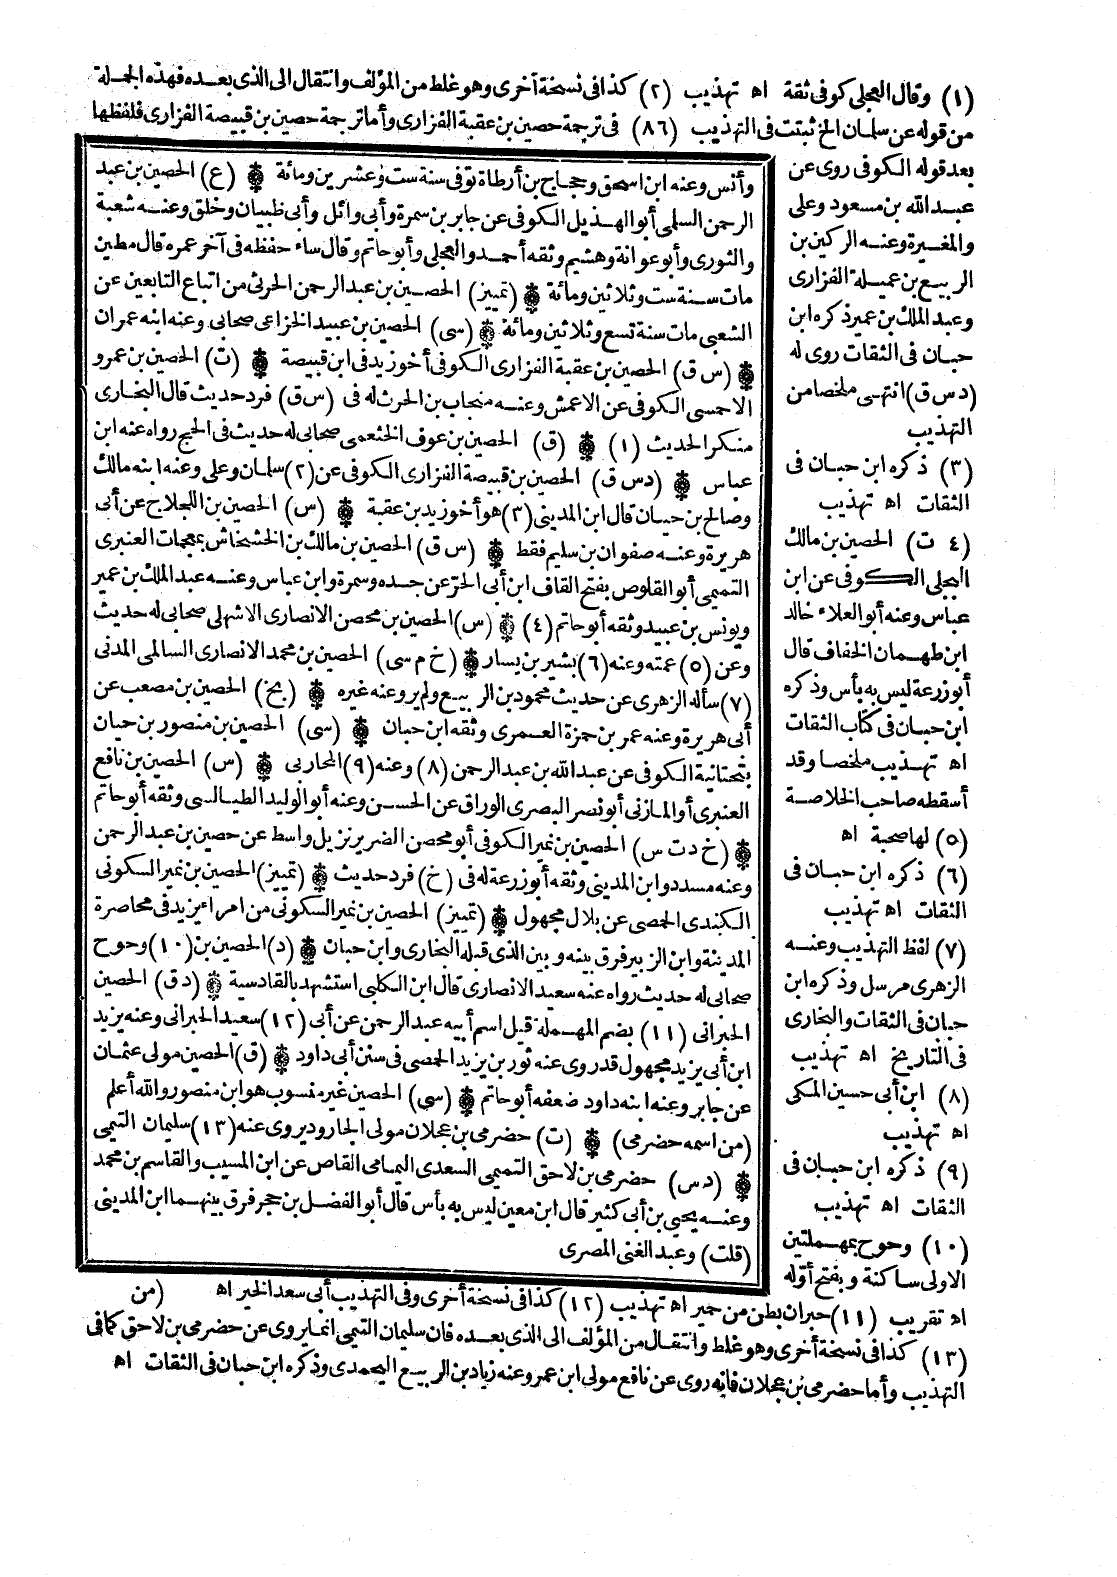 (١) وقال العجلي كوفي ثقة اه تهذيب (٢) كذا في نسخة أخرى وهو غلط من المؤلف وانتقال الى الذي بعده فهذه الجملة
من قوله عن سلمان الخ ثبتت في التهذيب (٨٦) في ترجمة حصين بن عقبة الفزاري وأما ترجمة حصين بن قبيصة الفزاري فلفظها
بعد قوله الكوفي روى عن
عبد الله بن مسعود وعلي
والمغيرة وعنه الركين بن
الربيع بن عميلة الفزاري
وعبد الملك بن عمير ذكره ابن
حبان في الثقات روى له
(د س ق) انتهى ملخصا من
التهذيب
(٣) ذكره ابن حبان في
الثقات اه تهذيب
(٤ ت) الحصين بن مالك
البجلي الكوفي عن ابن
عباس وعنه أبو العلاء خالد
ابن طهمان الخفاف قال
أبو زرعة ليس به بأس وذكره
ابن حبان في كتاب الثقات
اه تهذيب ملخصا وقد
أسقطه صاحب الخلاصة
(٥) لها صحبة اه
(٦) ذكره ابن حبان في
الثقات اه تهذيب
(٧) لفظ التهذيب وعنه
الزهري مرسل وذكره ابن
حبان في الثقات والبخاري
في التاريخ اه تهذيب
(٨) ابن أبي حسين المكي
اه تهذيب
(٩) ذكره ابن حبان في
الثقات اه تهذيب
(١٠) وحوح بمهملتين
الاولى ساكنة وبفتح أوله
وأنس وعنه ابن اسحق وحجاج بن أرطاة توفي سنة ست وعشرين ومائة ۞ (ع) الحصين بن عبد
الرحمن السلمي أبو الهذيل الكوفي عن جابر بن سمرة وأبي وائل وأبي ظبيان وخلق وعنه شعبة
والثوري وأبو عوانة وهشيم وثقه أحمد والعجلي وأبو حاتم وقال ساء حفظه في آخر عمره قال مطين
مات سنة ست وثلاثين ومائة ۞ (تمييز) الحصين بن عبد الرحمن الحرثي من اتباع التابعين عن
الشعبي مات سنة تسع وثلاثين ومائة ۞ (سي) الحصين بن عبيد الخزاعي صحابي وعنه ابنه عمران
۞ (س ق) الحصين بن عقبة الفزاري الكوفي أخو زيد في ابن قبيصة ۞ (ت) الحصين بن عمرو
الاحمسي الكوفي عن الاعمش وعنه منجاب بن الحرث له في (س ق) فرد حديث قال البخاري
منكر الحديث (١) ۞ (ق) الحصين بن عوف الخثعمي صحابي له حديث في الحج رواه عنه ابن
عباس ۞ (د س ق) الحصين بن قبيصة الفزاري الكوفي عن (٢) سلمان وعلي وعنه ابنه مالك
وصالح بن حبان قال ابن المديني (٣) هو أخو زيد بن عقبة ۞ (س) الحصين بن اللجلاج عن أبي
هريرة وعنه صفوان بن سليم فقط ۞ (س ق) الحصين بن مالك بن الخشخاش بمعجمات العنبري
التميمي أبو القلوص بفتح القاف ابن أبي الحر عن جده وسمرة وابن عباس وعنه عبد الملك بن عمير
ويونس بن عبيد وثقه أبو حاتم (٤) ۞ (س) الحصين بن محصن الانصاري الاشهلي صحابي له حديث
وعن (٥) عمته وعنه (٦) بشير بن يسار ۞ (خ م سي) الحصين بن محمد الانصاري السالمي المدني
(٧) سأله الزهري عن حديث محمود بن الربيع ولم يرو عنه غيره ۞ (بخ) الحصين بن مصعب عن
أبي هريرة وعنه عمر بن حمزة العمري وثقه ابن حبان ۞ (سي) الحصين بن منصور بن حيان
بتحتانية الكوفي عن عبد الله بن عبد الرحمن (٨) وعنه (٩) المحاربي ۞ (س) الحصين بن نافع
العنبري أو المازني أبو نصر البصري الوراق عن الحسن وعنه أبو الوليد الطيالسي وثقه أبو حاتم
۞ (خ د ت س) الحصين بن نمير الكوفي أبو محصن الضرير نزيل واسط عن حصين بن عبد الرحمن
وعنه مسدد وابن المديني وثقه أبو زرعة له في (خ) فرد حديث ۞ (تمييز) الحصين بن نمير السكوني
الكندي الحمصي عن بلال مجهول ۞ (تمييز) الحصين بن نمير السكوني من امراء يزيد في محاصرة
المدينة وابن الزبير فرق بينه وبين الذي قبله البخاري وابن حبان ۞ (د) الحصين بن (١٠) وحوح
صحابي له حديث رواه عنه سعيد الانصاري قال ابن الكلبي استشهد بالقادسية ۞ (د ق) الحصين
الحبراني (١١) بضم المهملة قيل اسم أبيه عبد الرحمن عن أبي (١٢) سعيد الحبراني وعنه يزيد
ابن أبي يزيد مجهول قد روى عنه ثور بن يزيد الحمصي في سنن أبي داود ۞ (ق) الحصين مولى عثمان
عن جابر وعنه ابنه داود ضعفه أبو حاتم ۞ (سي) الحصين غير منسوب هو ابن منصور والله أعلم
(من اسمه حضرمي) ۞ (ت) حضرمي بن عجلان مولى الجارود يروي عنه (١٣) سليمان التيمي
۞ (د س) حضرمي بن لاحق التميمي السعدي اليمامي القاص عن ابن المسيب والقاسم بن محمد
وعنه يحيى بن أبي كثير قال ابن معين ليس به بأس قال أبو الفضل بن حجر فرق بينهما ابن المديني
(قلت) وعبد الغني المصري
(من
اه تقريب (١١) حبران بطن من حمير اه تهذيب (١٢) كذا في نسخة أخرى وفي التهذيب أبي سعد الخير اه
(١٣) كذا في نسخة أخرى وهو غلط وانتقال من المؤلف الى الذي بعده فان سليمان التيمي انما يروي عن حضرمي بن لاحق كما في
التهذيب وأما حضرمي بن عجلان فانه روى عن نافع مولى ابن عمر وعنه زياد بن الربيع اليحمدي وذكره ابن حبان في الثقات اه